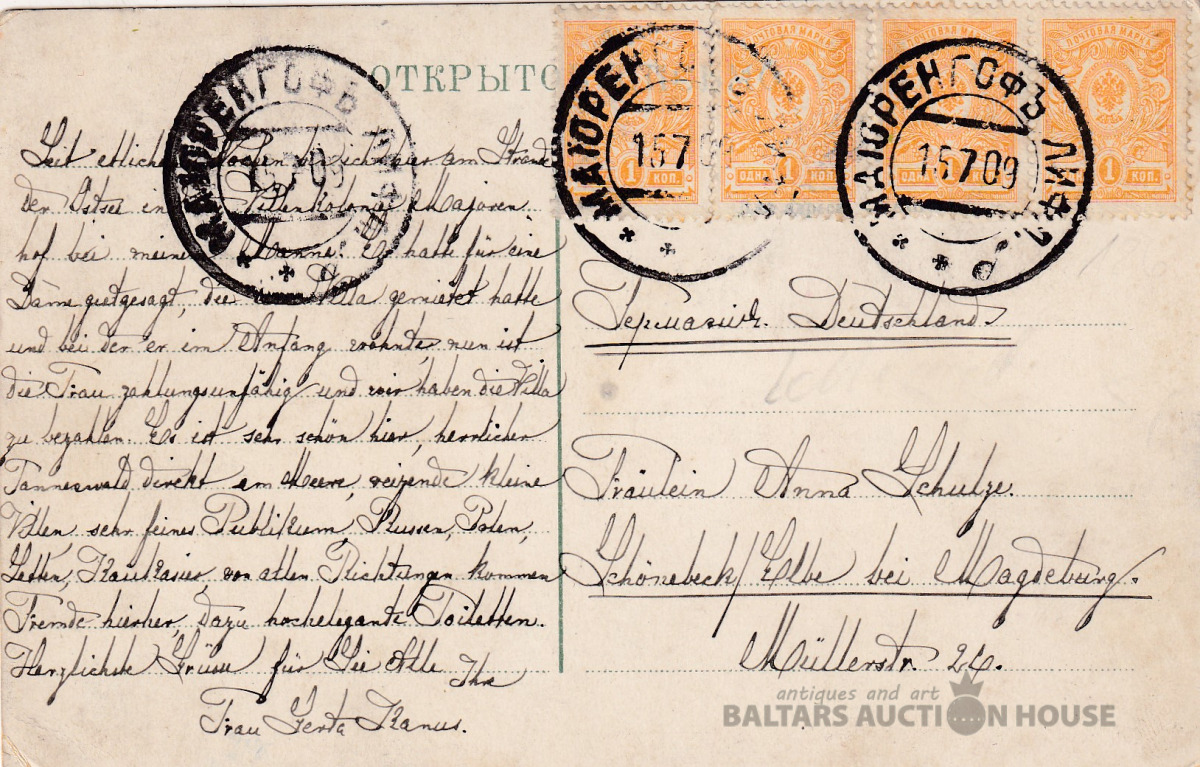 ОТКРЫТО
ПОЧТОВАЯ МАРКА
ОДНА 1 КОП.
1 КОП.
МАІОРЕНГОФЪ ЛИФЛ.
09
МАІОРЕНГОФЪ
15 7 09
МАІОРЕНГОФЪ ЛИФЛ.
15 7 09
Seit etlichen Wochen bin ich hier am Strande
der Ostsee in Villenkolonie Majoren
hof bei meinem Manne. Er hatte für eine
Dame gutgesagt, die eine Villa gemietet hatte
und bei der er im Anfang wohnte, nun ist
die Frau zahlungsunfähig und wir haben die Villa
zu bezahlen. Es ist sehr schön hier, herrlicher
Tannenwald direkt am Meere, reizende kleine
Villen sehr feines Publikum, Russen, Polen,
Letten, Kaukasier, von allen Richtungen kommen
Fremde hierher, dazu hochelegante Toiletten.
Herzlichste Grüsse für Sie Alle Ihre
Frau
Deutschland
Fräulein Anna Schulze.
Schönebeck/Elbe bei Magdeburg.
Müllerstr.
antiques and art
BALTARS AUCTION HOUSE